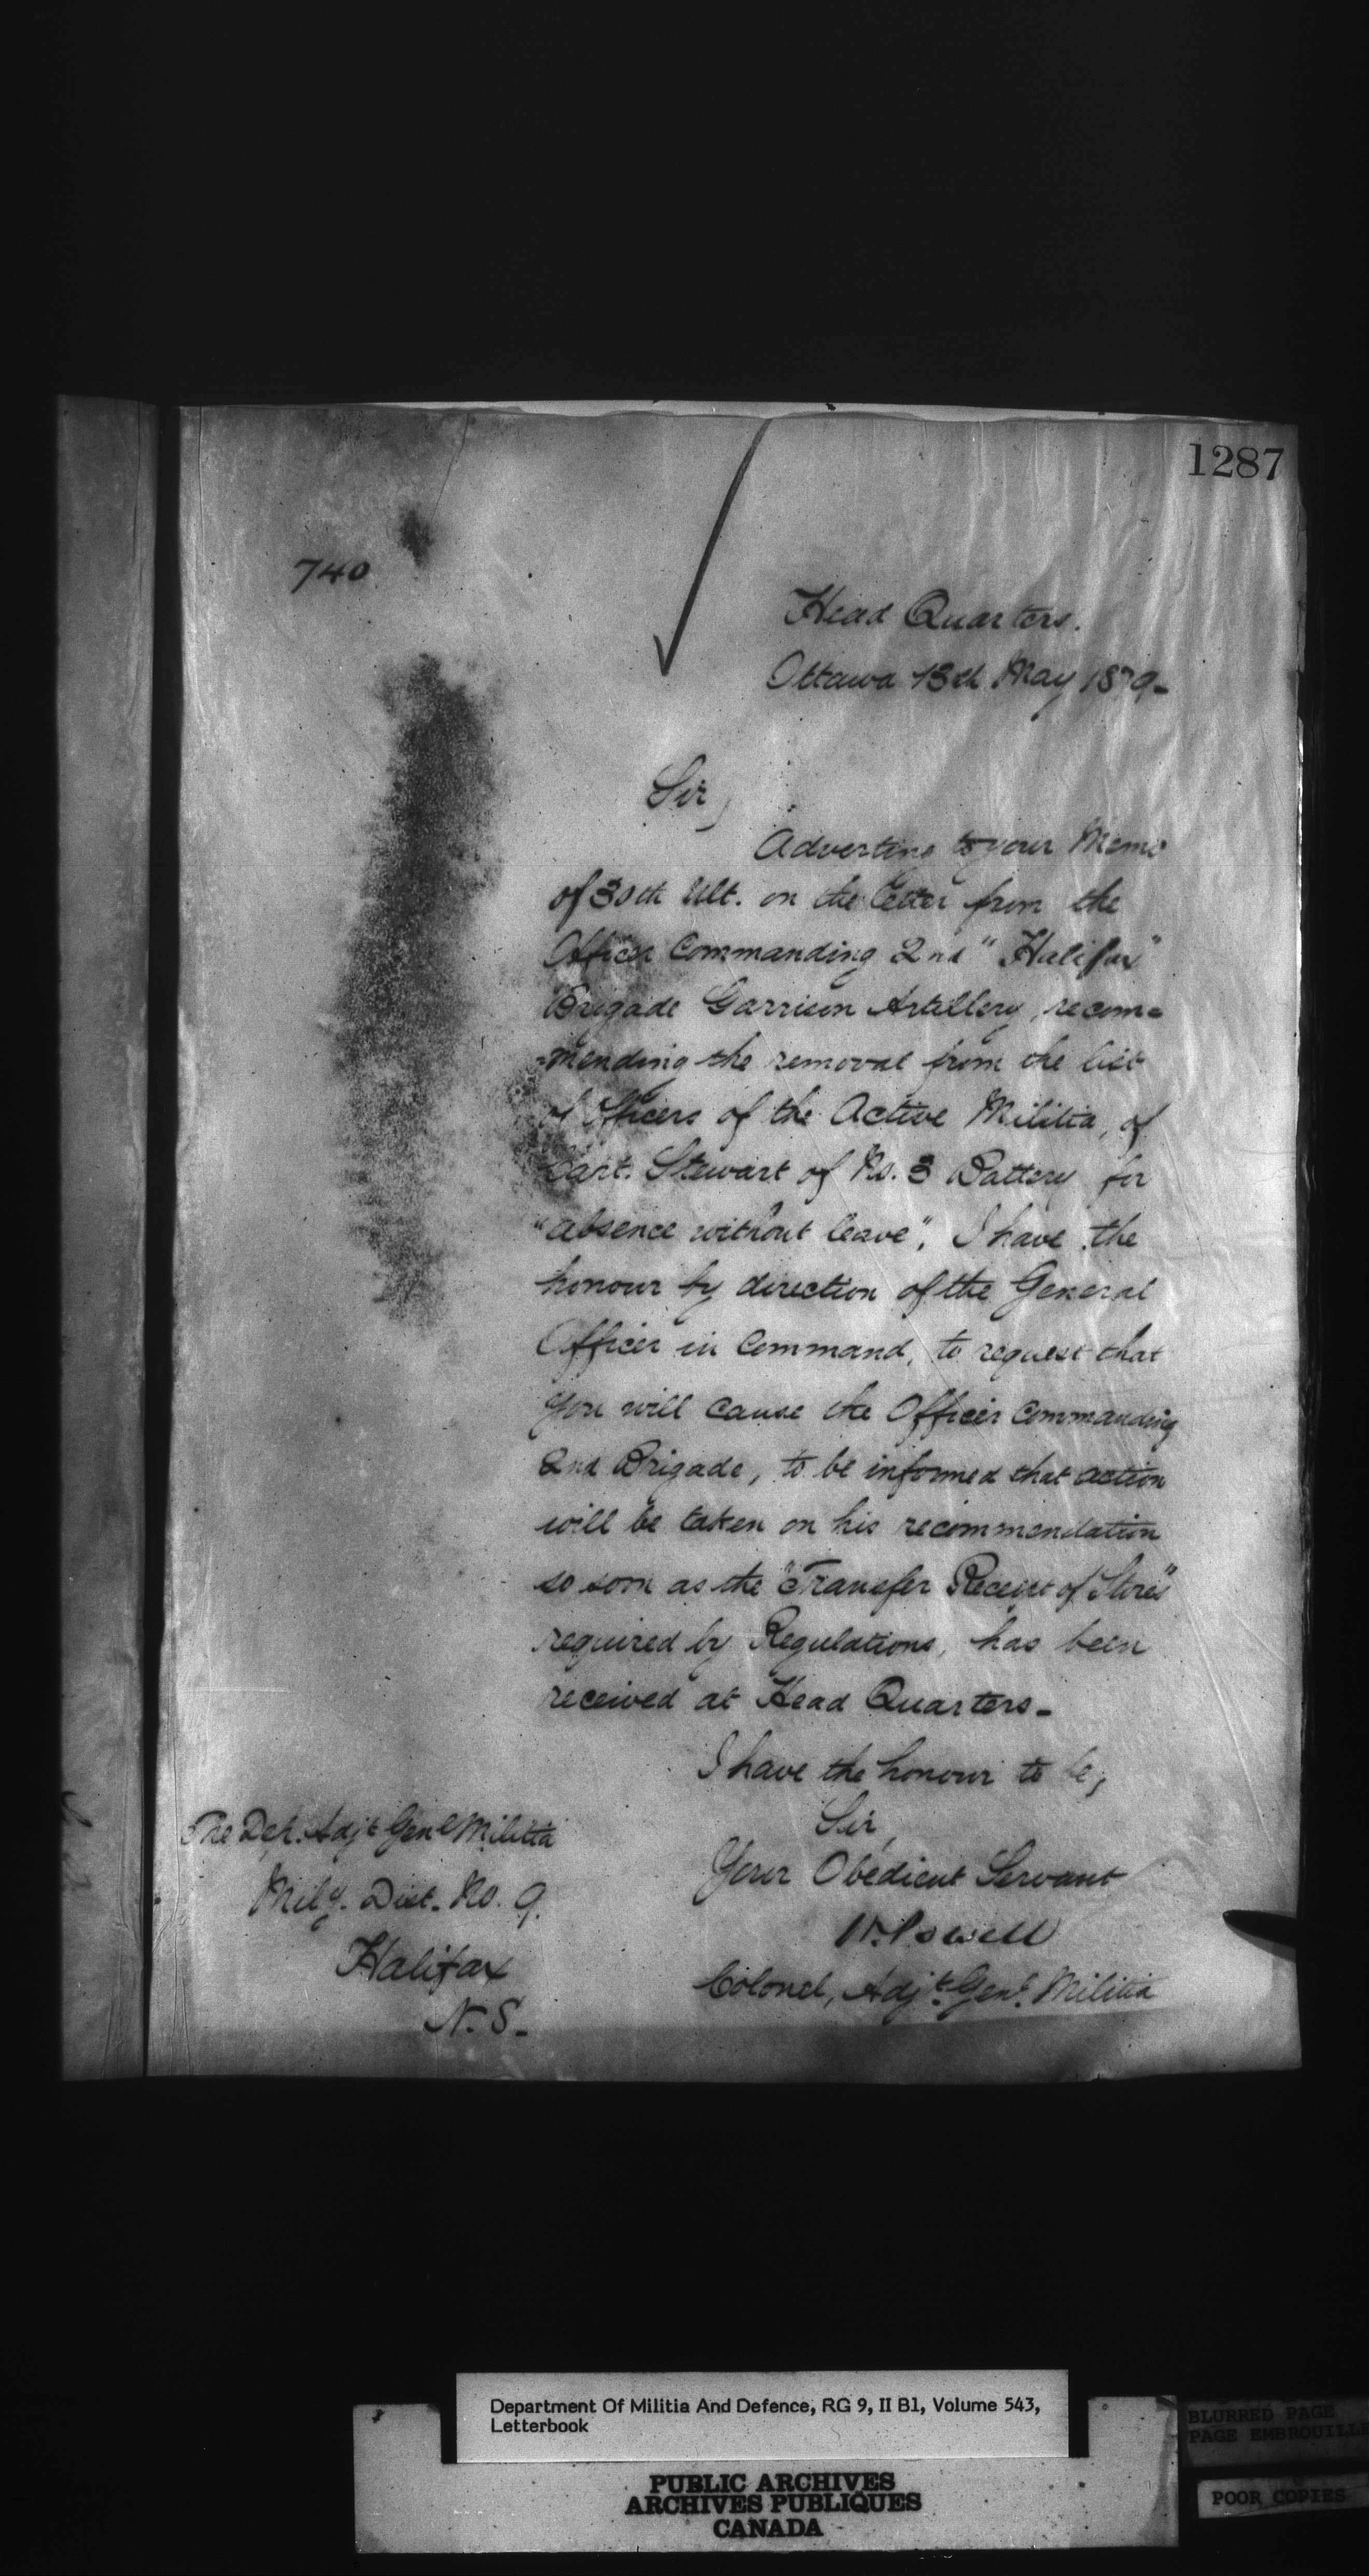 1287
740
Head Quarters.
Ottawa 13th May 1879-
Sir,
Adverting to your Memo
of 30th Ult. on the letter from the
Officer Commanding 2nd "Halifax"
Brigade Garrison Artillery, recom=
=mending the removal from the list
of Officers of the Active Militia, of
Capt. Stewart of No. 3 Battery for
"absence without leave", I have the
honour by direction of the General
Officer in Command, to request that
you will cause the Officer Commanding
2nd Brigade, to be informed that action
will be taken on his recommendation
so soon as the "Transfer Receipt of Stores"
required by Regulations, has been
received at Head Quarters-
I have the honour to be,
Sir,
Your Obedient Servant
W. Powell
Colonel, Adjt. Genl. Militia
The Dep. Adjt Genl Militia
Mily. Dist. No. 9.
Halifax
N.S.
Department Of Militia And Defence, RG 9, II B1, Volume 543,
Letterbook
PUBLIC ARCHIVES
ARCHIVES PUBLIQUES
CANADA
BLURRED PAGE
PAGE EMBROUILL
POOR COPIES